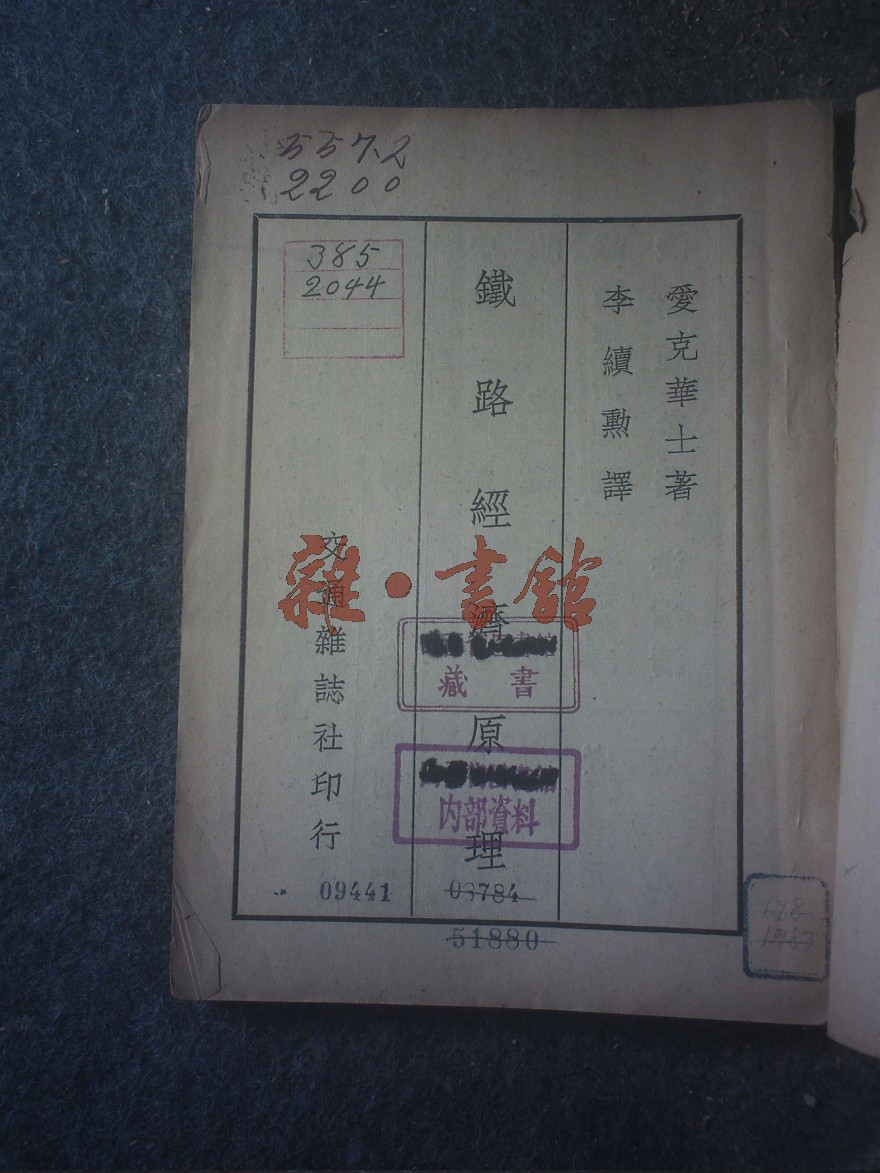 557.2
2200
385
2044
愛克華士著
李續勳譯
鐵路經濟原理
交通雜誌社印行
雜·書館
藏書
內部資料
09441
03784
51880